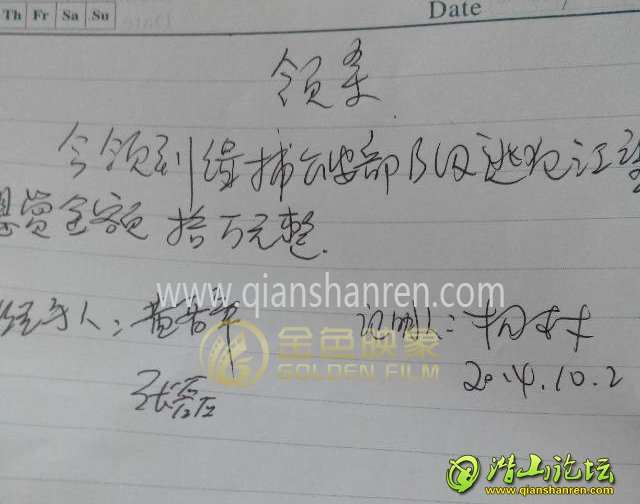 Th Fr Sa Su
Date
领条
今领到缉捕公安部B级逃犯江
悬赏金额拾万元整.
www.qianshanren.com
经手人: 黄
证明人: 杨林
金色映象
GOLDEN FILM
张磊
2014.10.2
潜山论坛
www.qianshanren.com